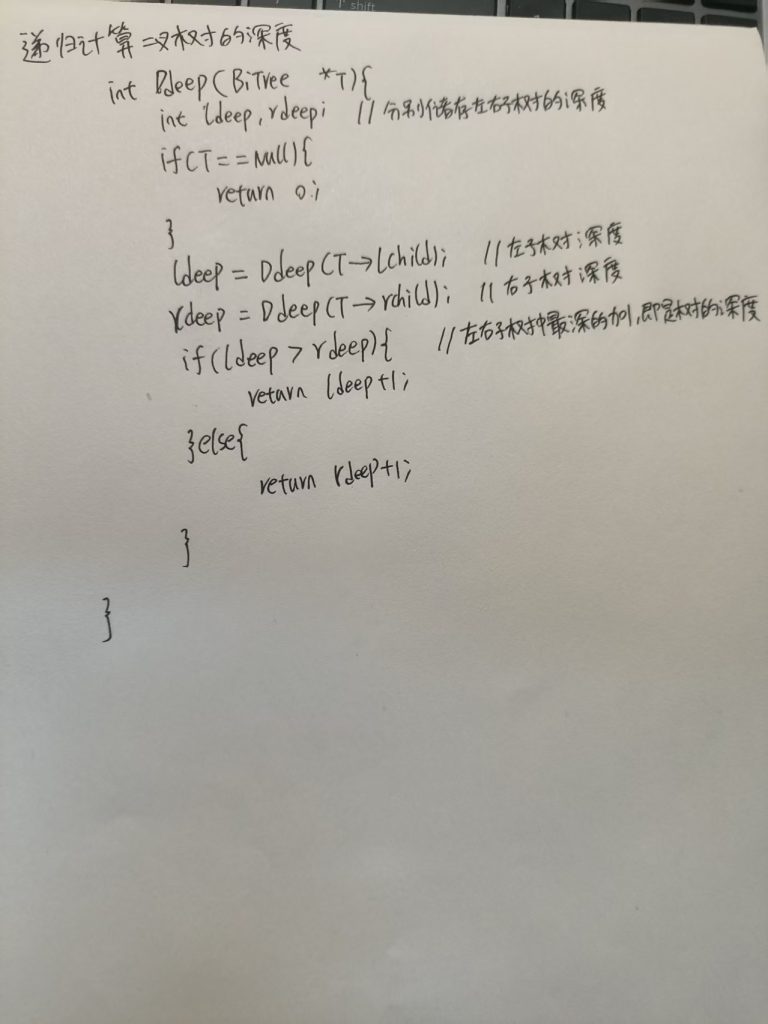 shift
递归计算二叉树的深度
int Ddeep(BiTree *T){
int ldeep,rdeep; //分别储存左右子树的深度
if(T==Null){
return 0;
}
ldeep = Ddeep(T→lchild); //左子树深度
rdeep = Ddeep(T→rchild); //右子树深度
if(ldeep > rdeep){ //左右子树中最深的加1,即是树的深度
return ldeep+1;
}else{
return rdeep+1;
}
}